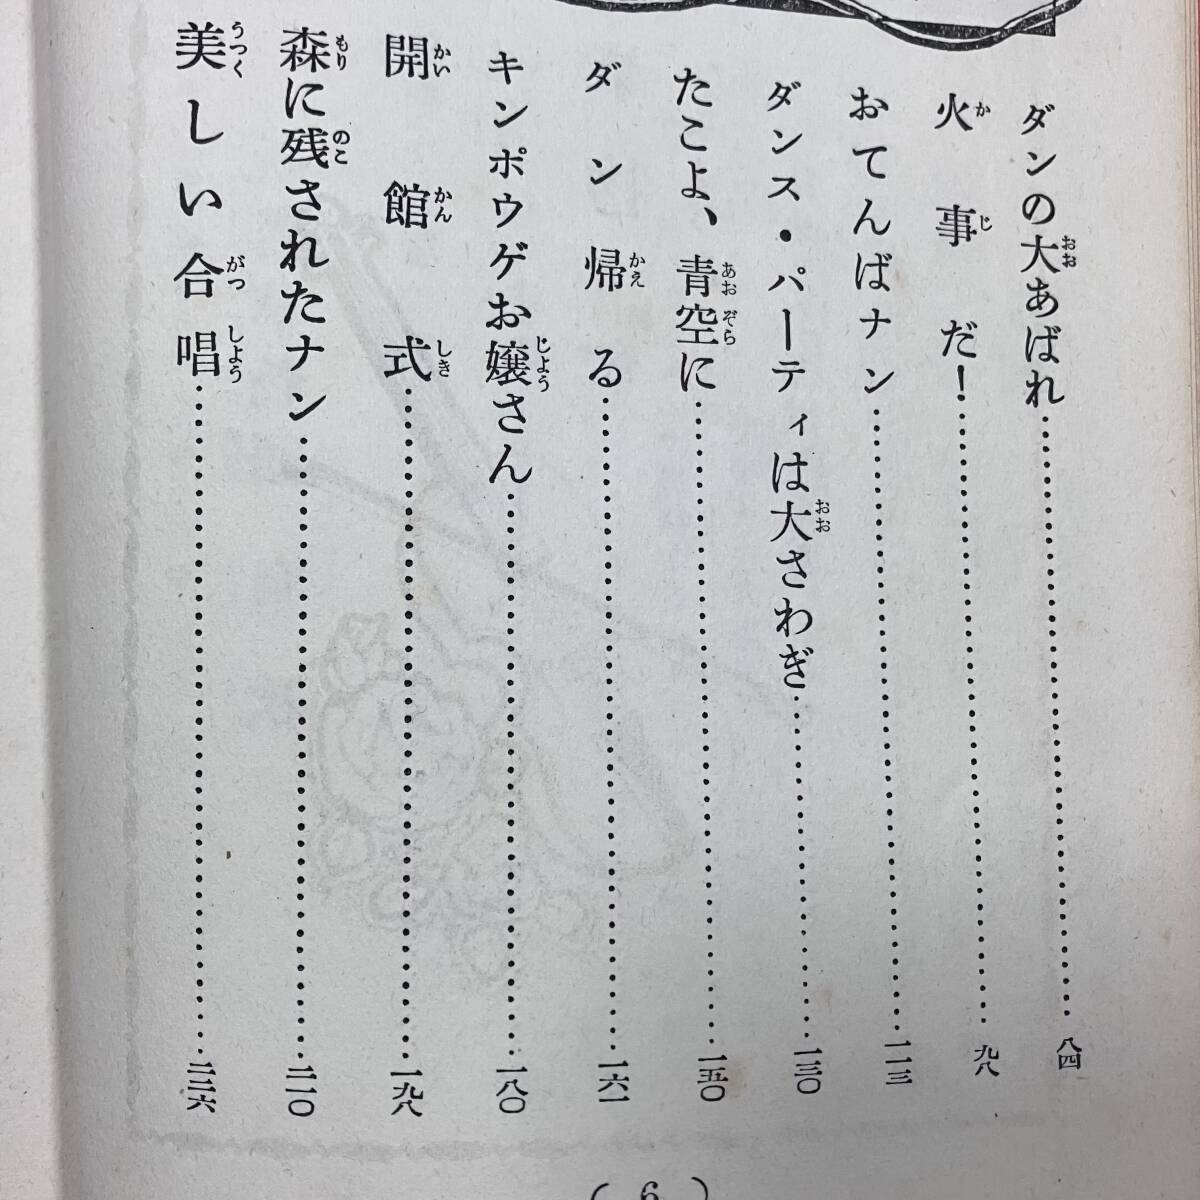 ダンの大あばれ……八四
火事だ！……九八
おてんばナン……一一三
ダンス・パーティは大さわぎ……一三〇
たこよ、青空に……一五〇
ダン帰る……一六一
キンポウゲお嬢さん……一八〇
開館式……一九八
森に残されたナン……二一〇
美しい合唱……二二六
( 6 )